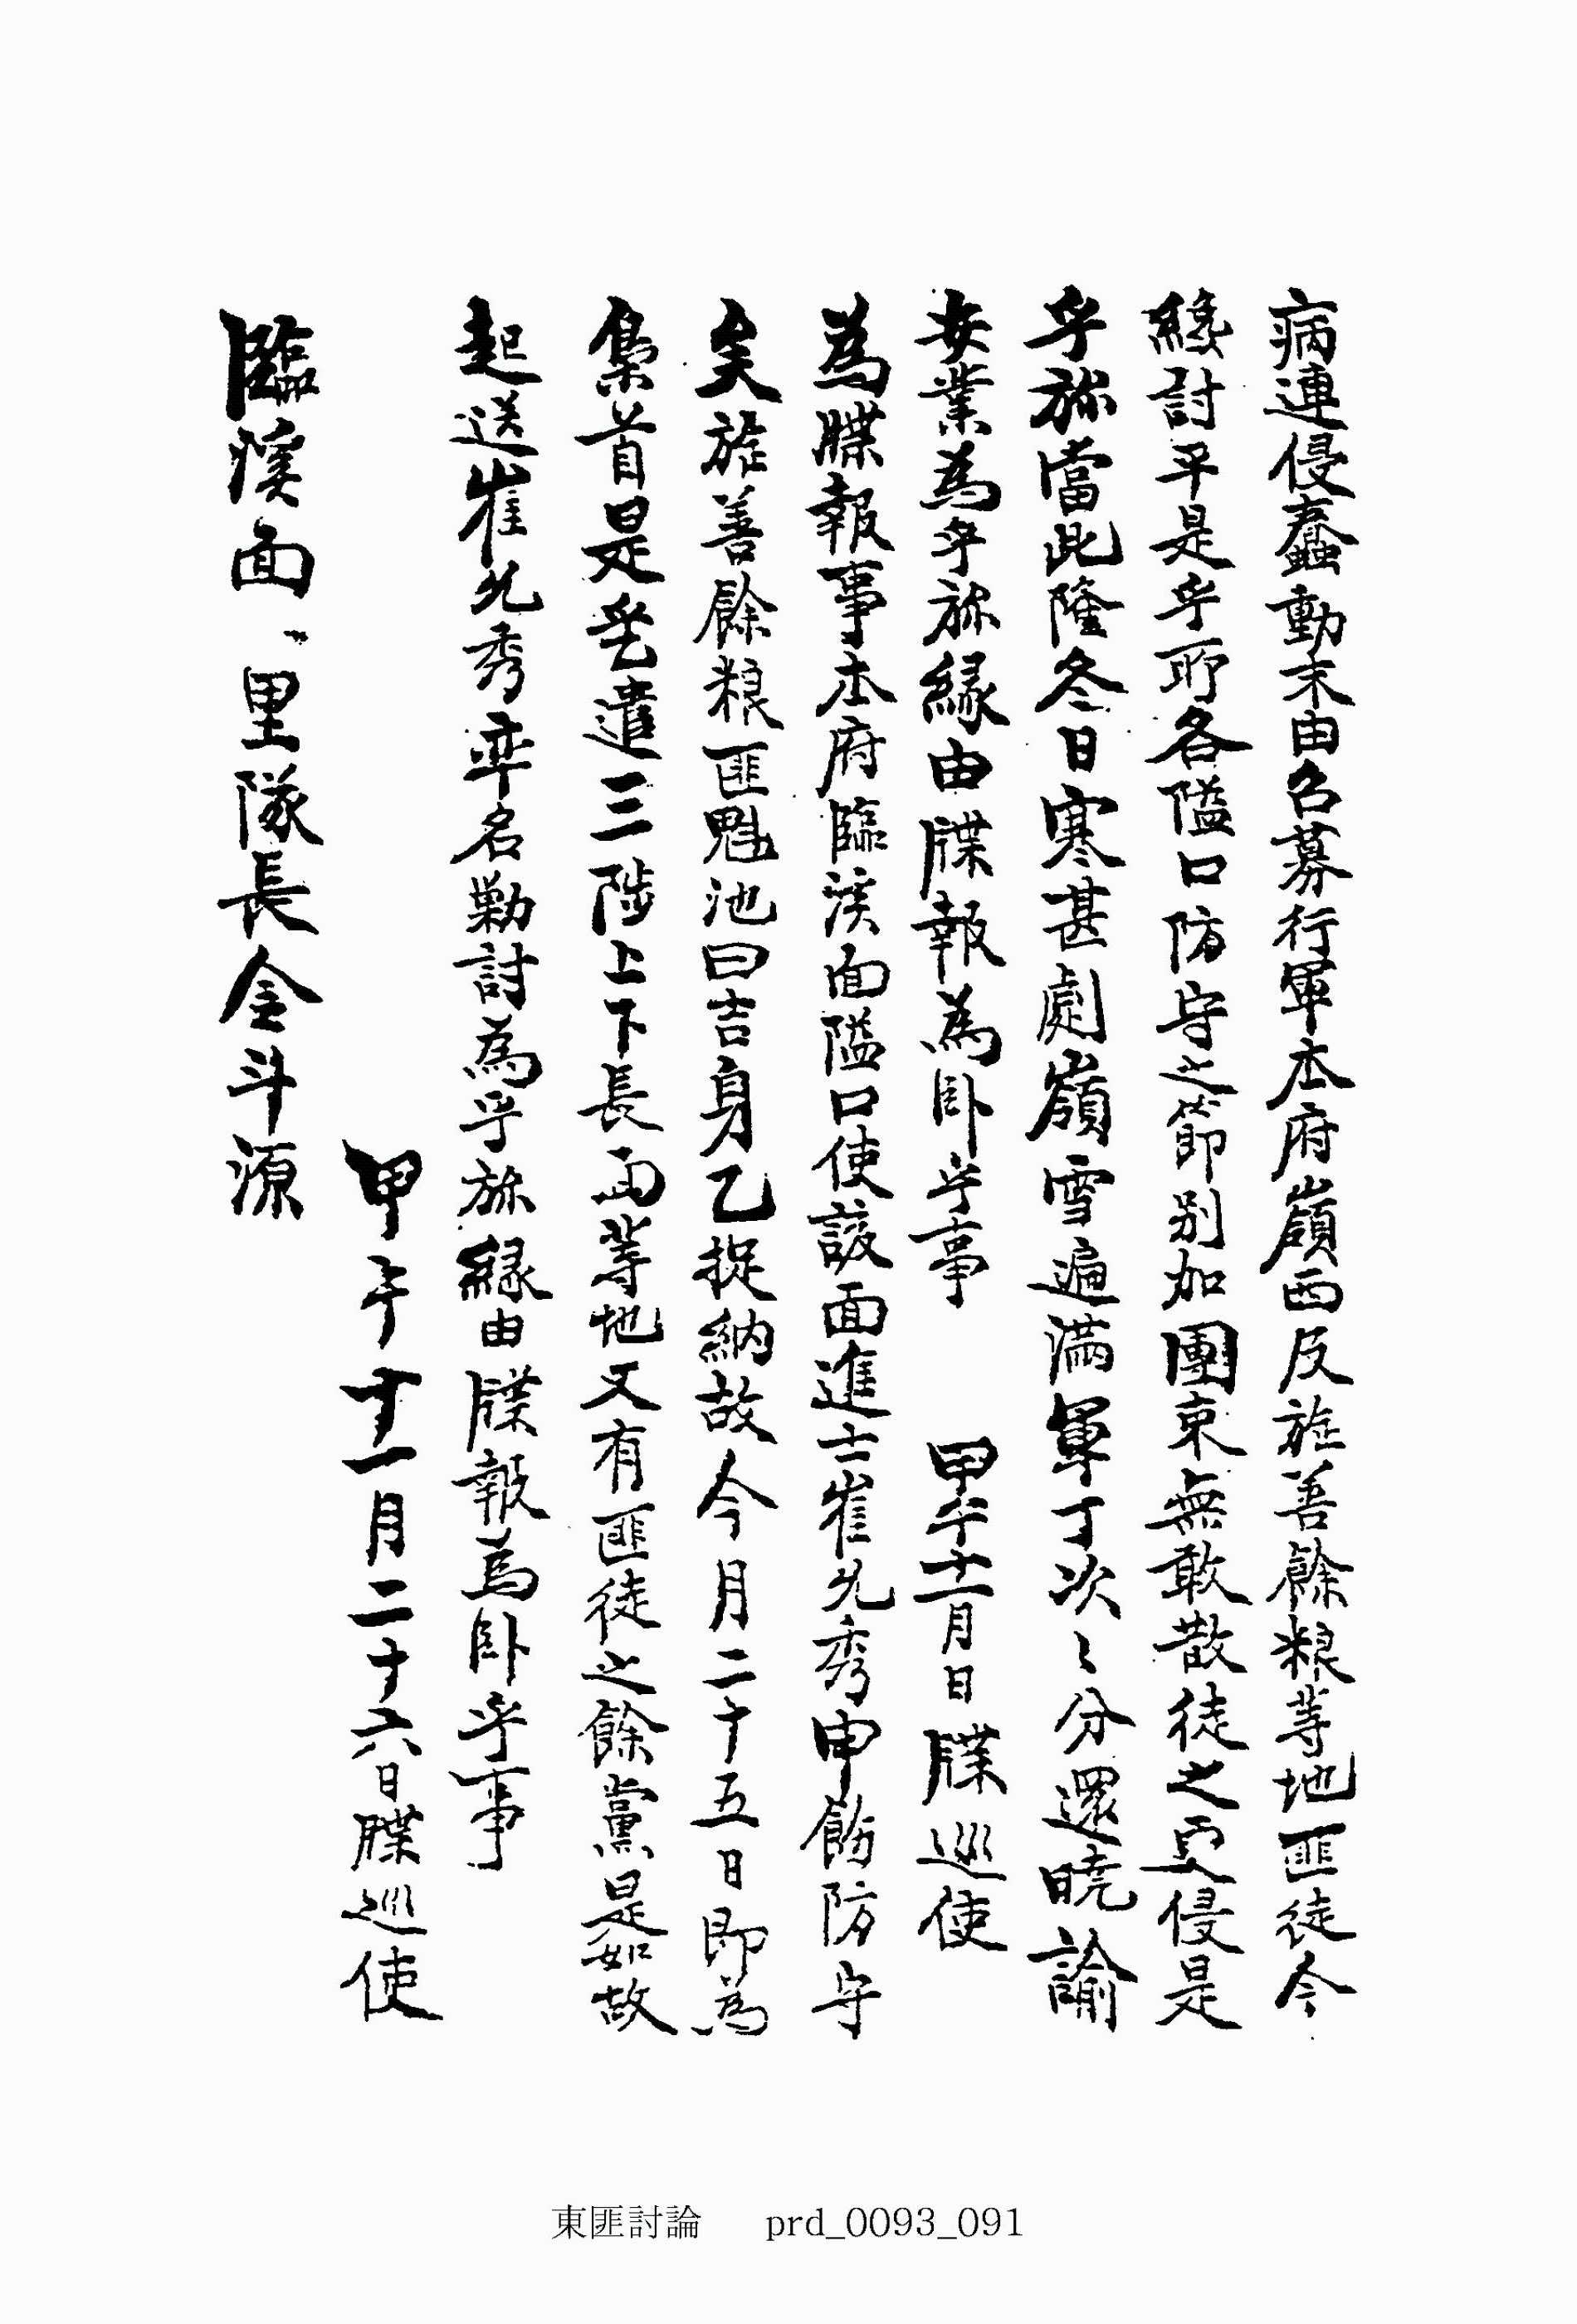 病連侵蠢動末由召募行軍本府嶺西及旌善餘粮等地匪徒今
纔討平是乎所各隘口防守之節別加團束無敢散徒之更侵是
乎旀當此隆冬日寒甚劇嶺雪遍滿軍丁次〻分還曉諭
安業爲乎旀緣由牒報爲臥乎事 甲午十一月日牒巡使
爲牒報事本府臨溪面隘口使該面進士崔允秀申飭防守
矣旌善餘粮匪魁池曰吉身乙捉納故今月二十五日即爲
梟首是乎遣三陟上下長面等地又有匪徒之餘黨是如故
起送崔允秀率名勦討爲乎旀緣由牒報爲臥乎事
甲午十一月二十六日牒巡使
臨溪面 里隊長金斗源
東匪討論 prd_0093_091